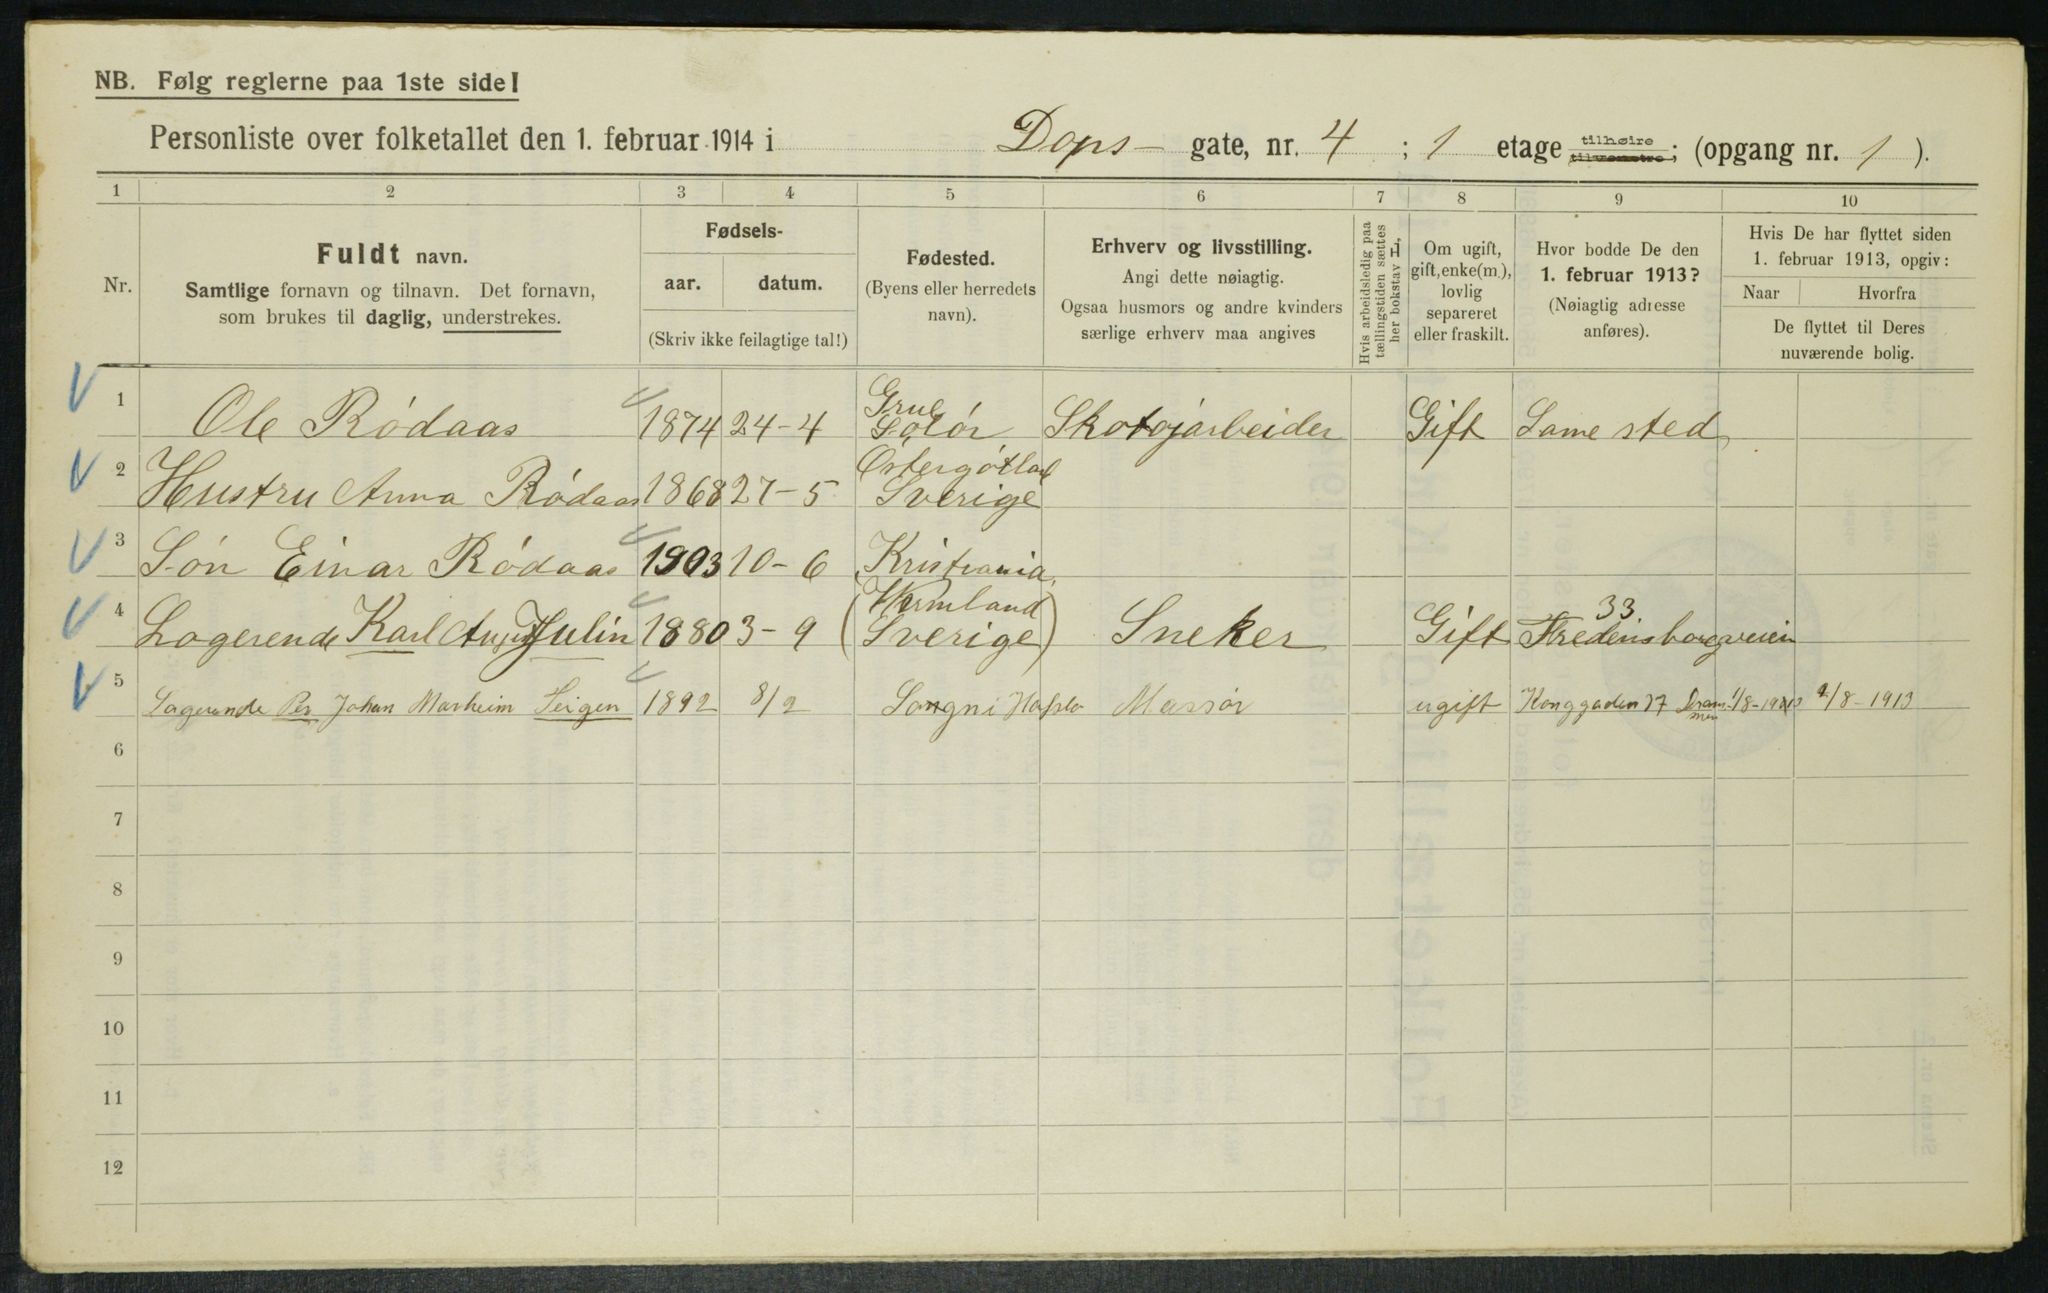 NB. Følg reglerne paa 1ste side!
Personliste over folketallet den 1. februar 1914 i Dops- gate, nr. 4 ; 1 etage tilhøire tilvenstre; (opgang nr. 1 ).
1 2 3 4 5 6 7 8 9 10
Nr.
Fuldt navn.
Samtlige fornavn og tilnavn. Det fornavn,
som brukes til daglig, understrekes.
Fødsels-
aar. datum.
(Skriv ikke feilagtige tal!)
Fødested.
(Byens eller herredets
navn).
Erhverv og livsstilling.
Angi dette nøiagtig.
Ogsaa husmors og andre kvinders
særlige erhverv maa angives
Hvis arbeidsledig paa
tællingstiden sættes
her bokstav L
Om ugift,
gift, enke(m.),
lovlig
separeret
eller fraskilt.
Hvor bodde De den
1. februar 1913?
(Nøiagtig adresse
anføres).
Hvis De har flyttet siden
1. februar 1913, opgiv:
Naar Hvorfra
De flyttet til Deres
nuværende bolig.
1 Ole Rödaas 1874 24-4 Grue Solör Skotøjarbeider Gift Same sted
2 Hustru Anna Rödaas 1868 27-5 Östergötland Sverige
3 Sön Einar Rödaas 1903 10-6 Kristiania
4 Logerende Karl August Julin 1880 3-9 (Wermland Sverige) Sneker Gift 33 Fredensborgveien
5 Logerende Per Johan Marheim Seigen 1892 8/2 Sogn i Hafslo Massör ugift Konggaden 27 Drammen 1/8-1913 2/8-1913
6
7
8
9
10
11
12